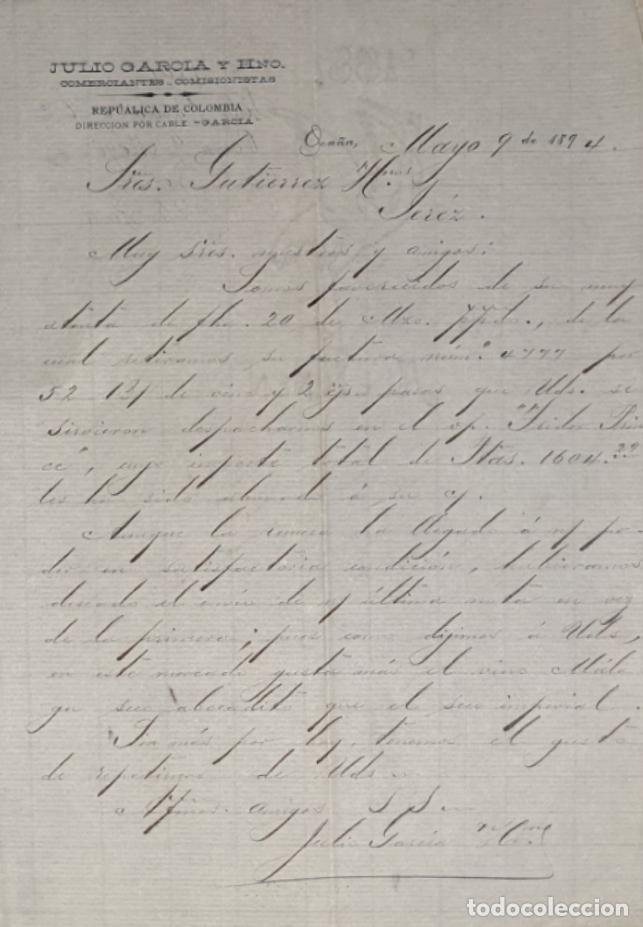 JULIO GARCIA Y HNO.
COMERCIANTES-COMISIONISTAS
REPÚALICA DE COLOMBIA
DIRECCION POR CABLE "GARCIA"
Ocaña, Mayo 9 de 1894.
Sres. Gutierrez Hnos
Jeréz.
Muy sres. nuestros y amigos:
Somos favorecidos de su muy
atenta de fha. 20 de Mzo. ppdo., de la
cual retiramos su factura núm.° 4777 por
52 de vino y 2 pasas que Uds. se
sirvieron despacharnos en el vp. "Frider Prin
ce", cuyo importe total de Ptas. 1604.29
les ha sido abonado á su c/.
Aunque la remesa ha llegado á n/ po-
der en satisfactoria condición, hubiéramos
deseado el envío de n/ última nota en vez
de la primera; pues como dijimos á Uds.,
en este mercado gusta más el vino Mála
ga seco abocadito que el seco imperial.
Sin más por hoy, tenemos el gusto
de repetirnos de Uds.
Afmos. amigos S. S.
Julio García Hno
todocoleccion